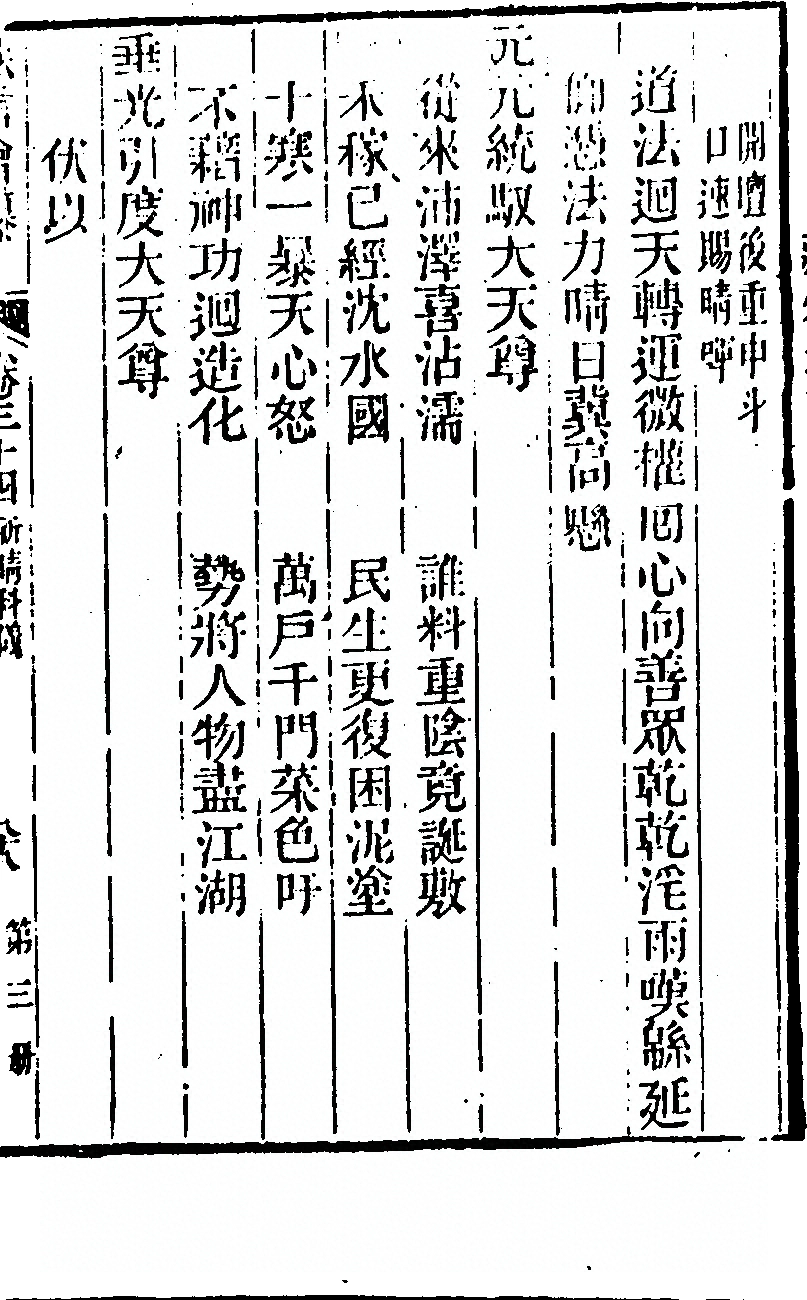 開壇後重申斗
口速賜晴啤
道法迴天轉運微權回心向善眾乾乾淫雨嘆緜延
仰憑法力晴日冀高懸
元元統馭大天尊
從來沛澤喜沾濡 誰料重陰竟誕敷
禾稼已經沈水國 民生更復困泥塗
十寒一暴天心怒 萬戶千門菜色吁
不藉神功迴造化 勢將人物盡江湖
垂光引度大天尊
伏以
卷三十四 祈晴科儀
第三册